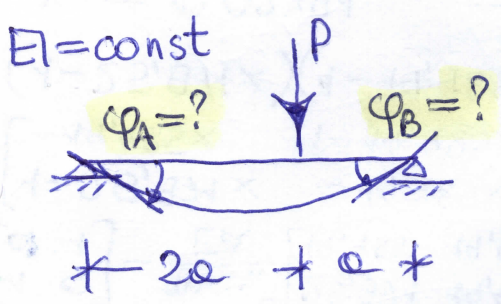 EI=const
P
φA=?
φB=?
2a
a